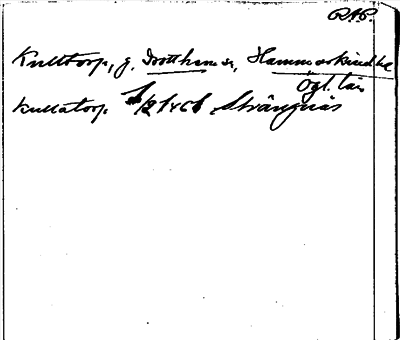 RAP.
Kulltorp, g. Drothem sn, Hammarkinds hd
Ögl. län
Kullatorp 1/2 1461 Strängnäs